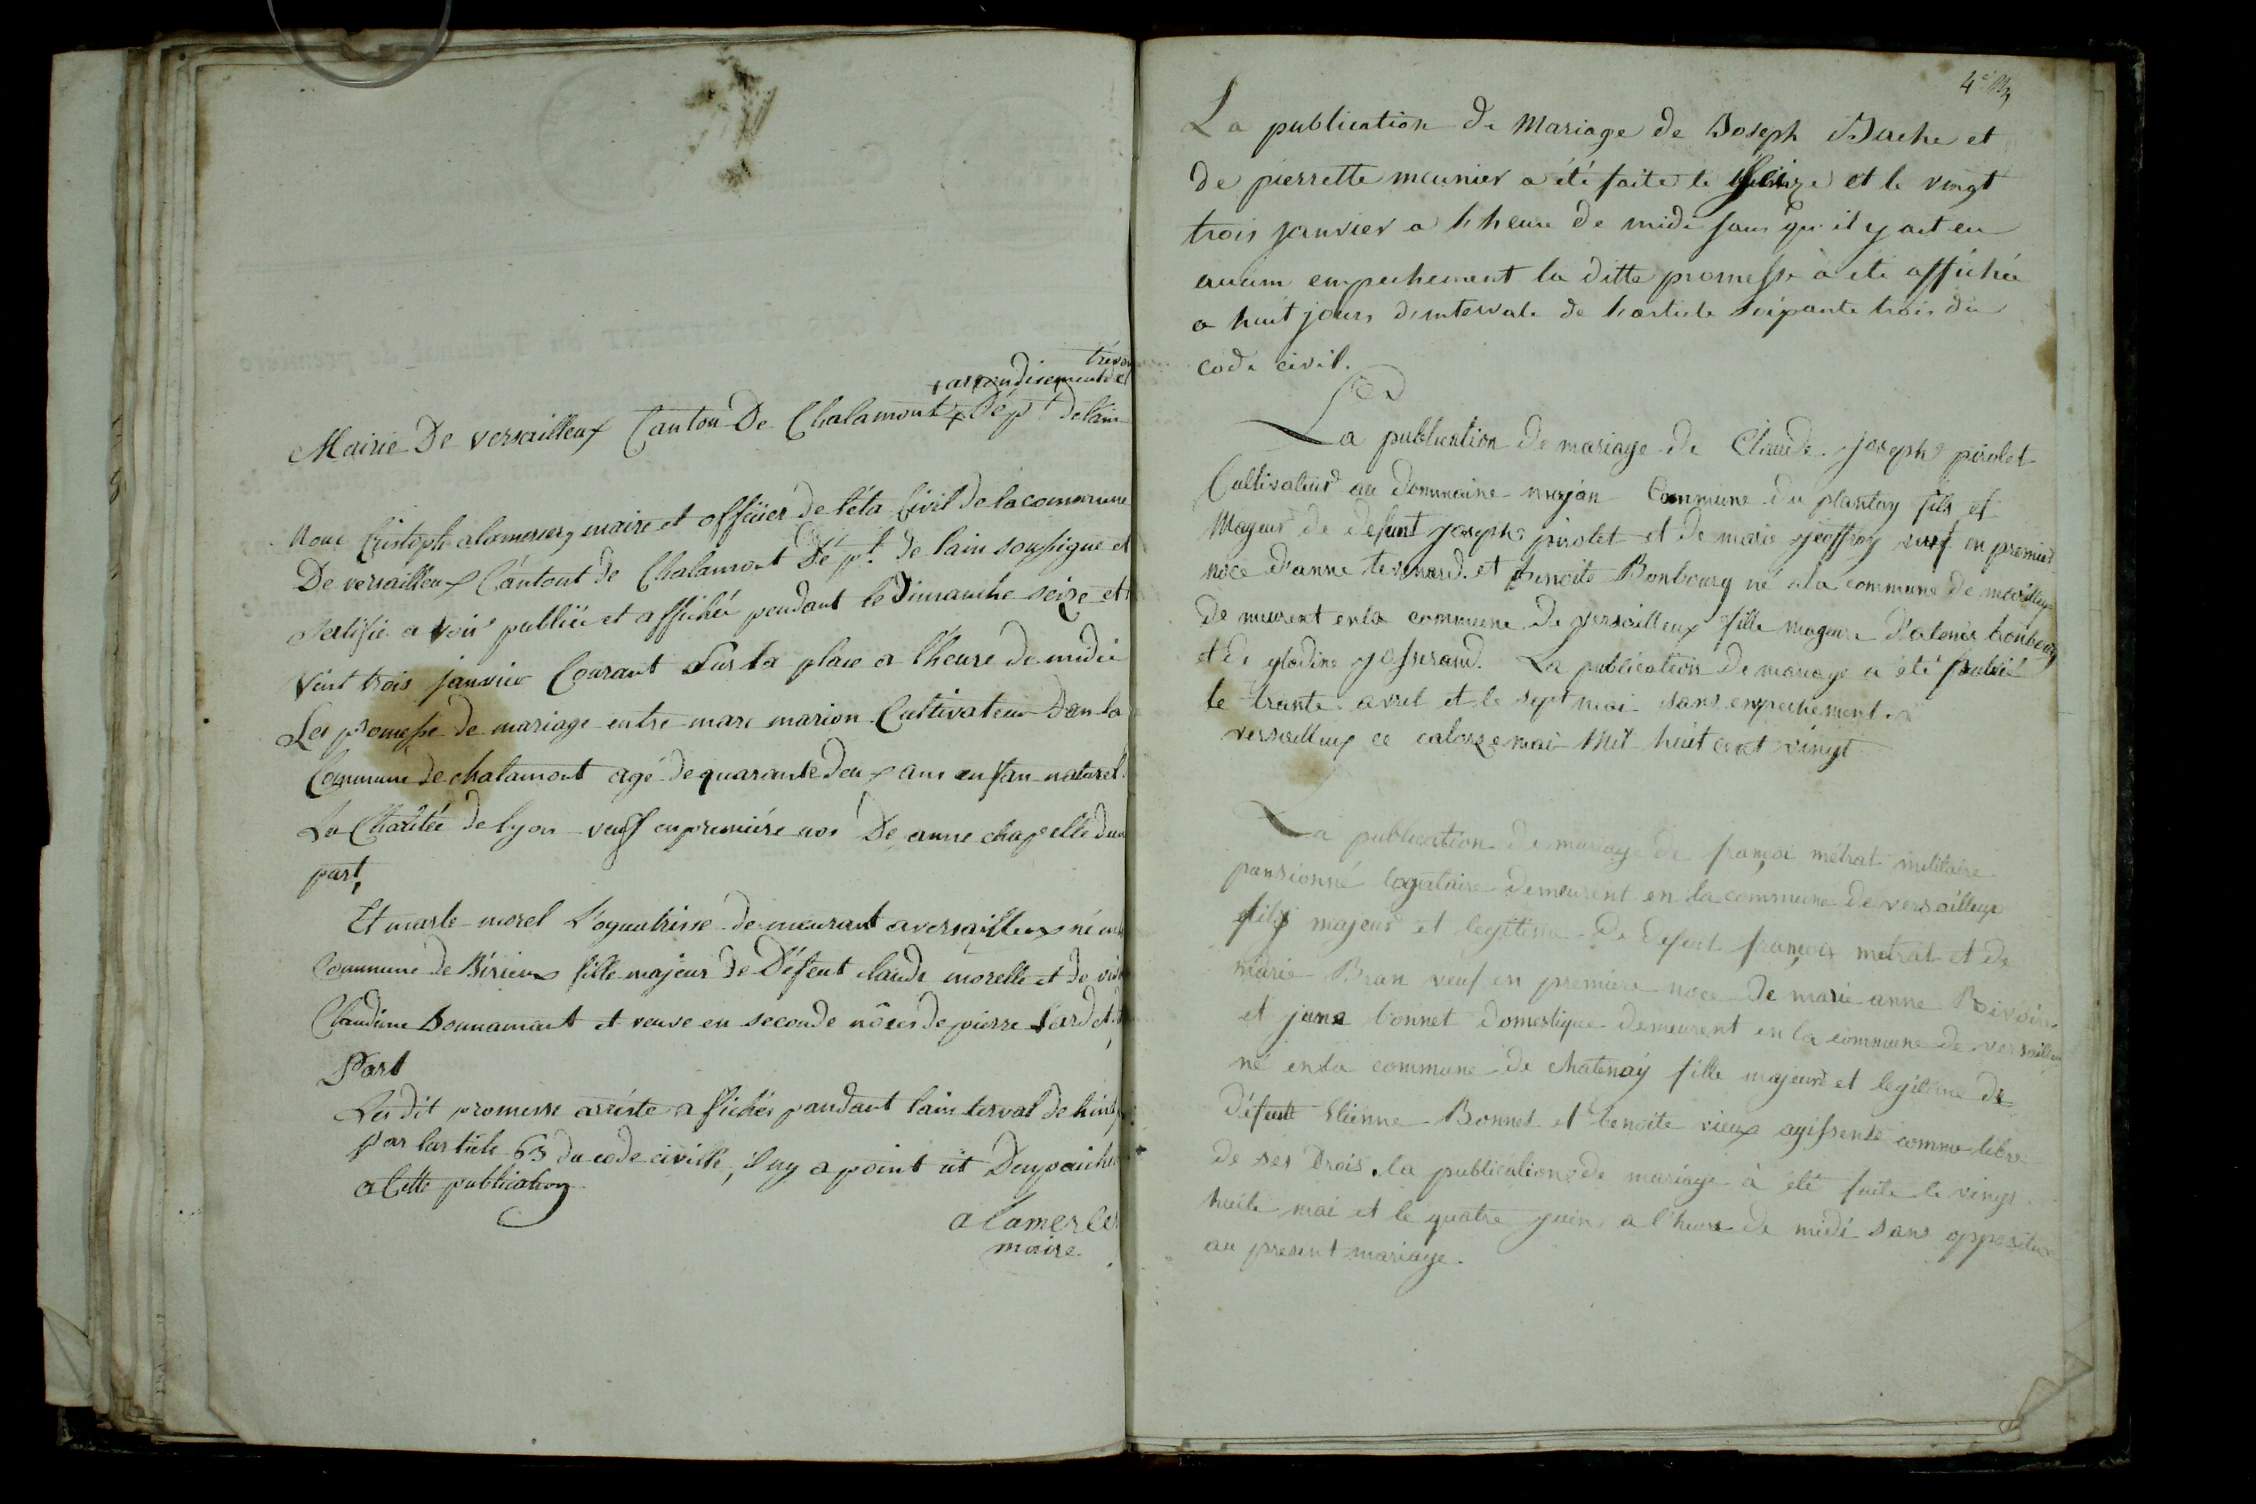 trévou
+ arrondisement de
Mairie De versailleux Canton De Chalamont + Dépt Delain
Nous Cristoph alamercery maire et officier de léta Civil de la commune
De versailleux Cantont de Chalamont Dépt. de lain soussigne et
Sertifie a voir publiée et affichée pendant le Dimanche seize et
Vint trois janvier Courant Sur la place a lheure de midie
Les promesse de mariage entre marc marion Cultivateur Dan la
Commune de chalamont agé de quarante deux ans enfan naturel
La Charitée de lyon veuf en première nos De anne chapelle dun
part,
Et marte morel L'oquatrisse demeurant a versailleux né en
Commune de Birieux fille majeur de Défeut claude morelle et de
Claudine Bonnamant et veuve en seconde nôces de pierre
Part
Les dit promesse arréste a fichés pandant lainterval de huit
par larticle 63 du code civille, il ny a point ut Dempaiche
a Cette publication
alamercer
maire
4e
La publication de Mariage de Joseph Bache et
de pierrette meunier a été faite le seize et le vingt
trois janvier a lheure de midi sans qu'il y ait eu
aucun empechement la ditte promesse à eté affichée
a huit jours dintervale de l'article soixante trois du
code civil.
La publication de mariage de Claude joseph pirolet
Cultivateur au dommaine mujan Commune du plantay fils et
Mayeur de defunt joseph pirolet et de marie geoffray veuf en premier
noce d'anne tevenard et Benoite Bonbourg né ala commune de
de meurent en la commune de versailleux fille mageure
et de glodine josserand. La publication de mariage a été publié
le trante avril et le sept mai sans enpechement.
versailleux ce catorze mai Mil huit cent vingt
La publication de mariage de françoi métrat militaire
pansionné logataire demeurent en la commune de versailleux
fils majeur et legitime de Defunt françois metrat et de
marie Bran veuf en premiere noce de marie anne
et jane bonnet domestique demeurent en la commune de versailleux
né en la commune de chatenay fille majeur et legitime de
défunt Etienne Bonnet et benoite vieux agissente comme libre
de ses Drois. la publication de mariage à été faite le vingt
huite mai et le quatre juin a l'heure de midi sans opposition
au present mariage.